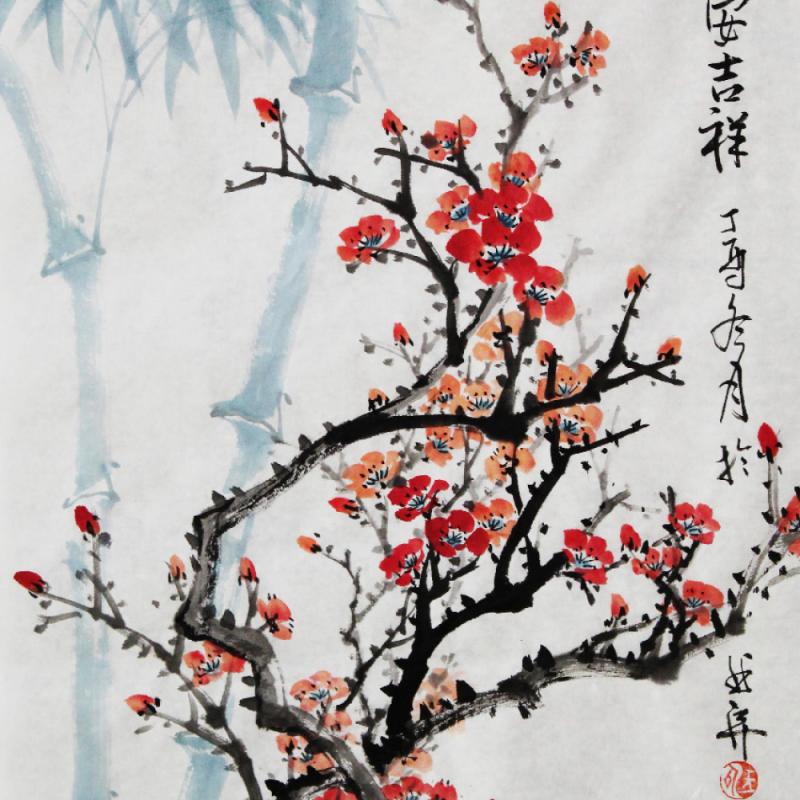 安吉祥
丁酉冬月於